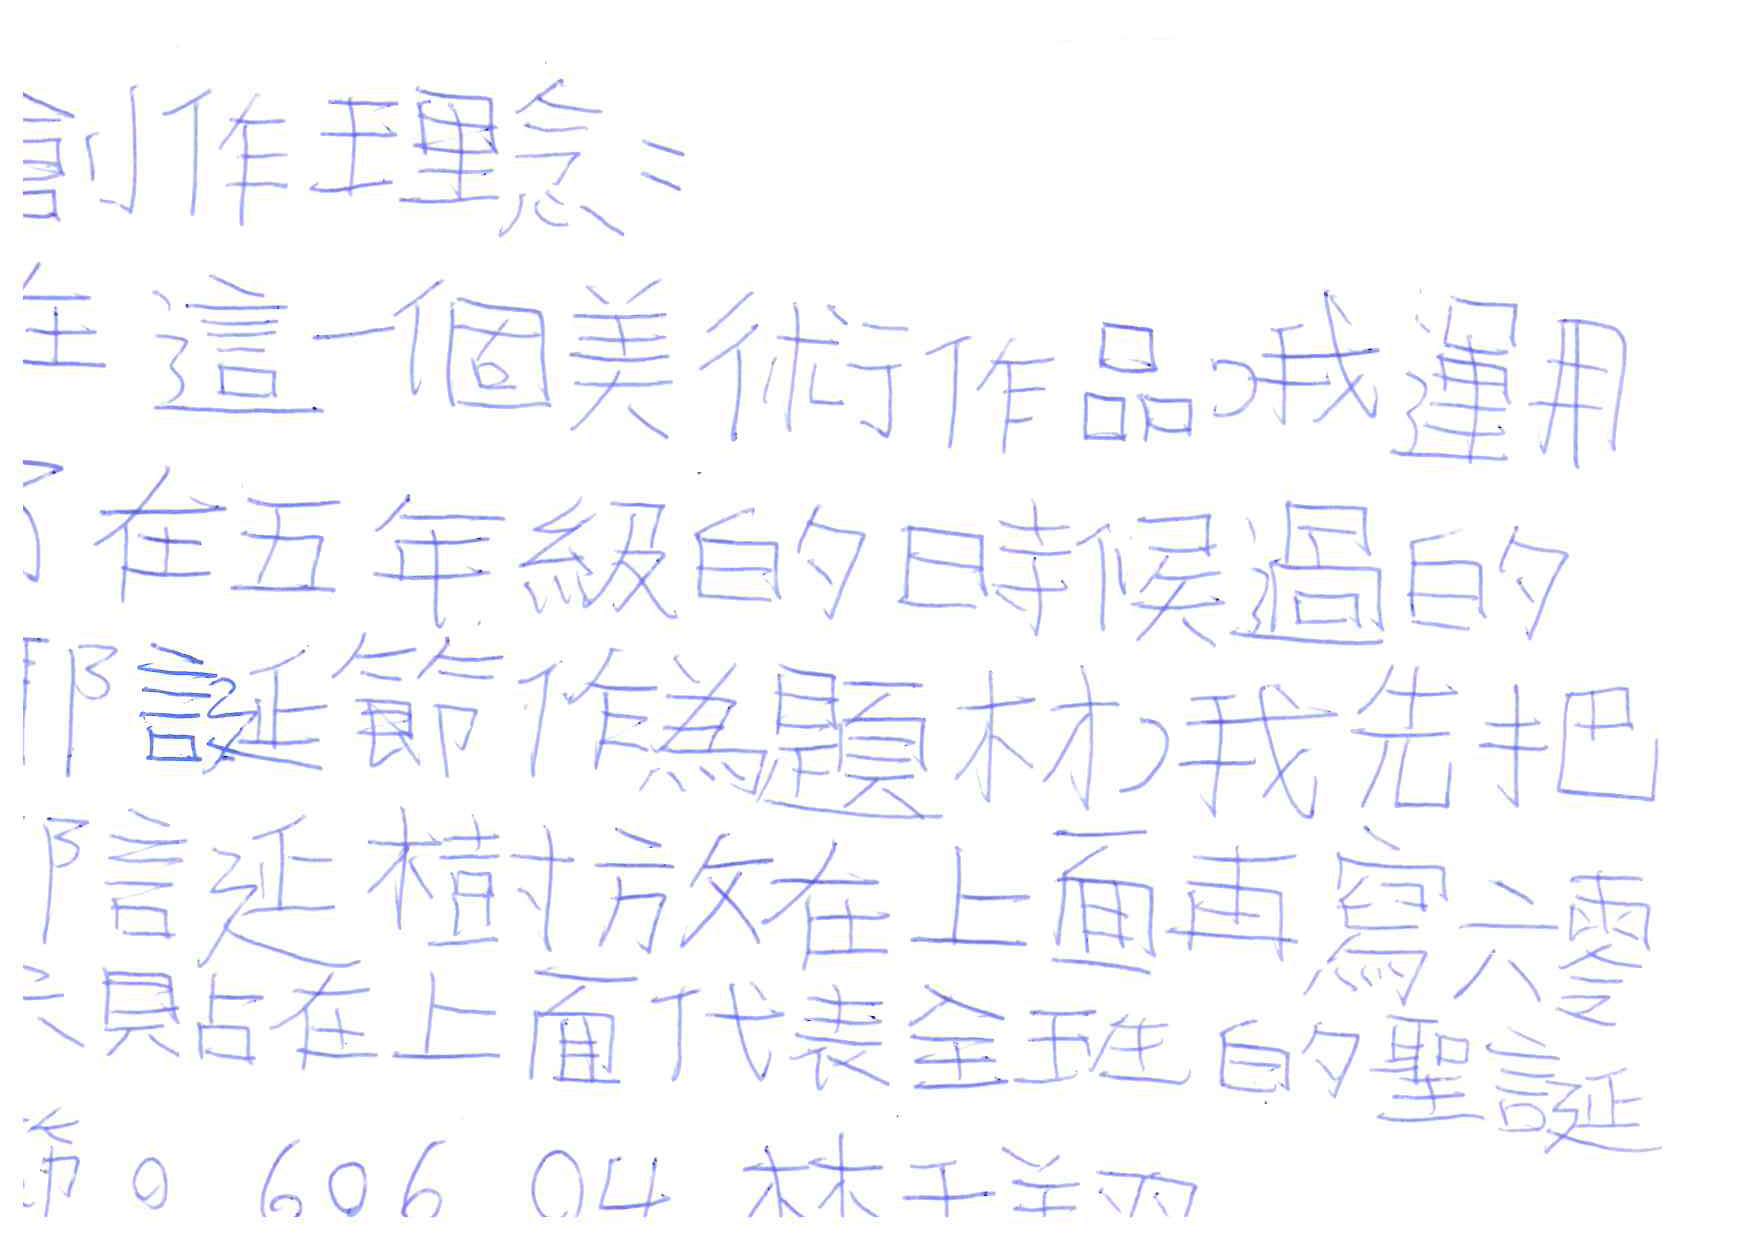 創作理念：
在這一個美術作品，我運用
了在五年級的時候過的
耶誕節作為題材，我先把
耶誕樹放在上面再寫六零
六貼在上面代表全班的聖誕
節。 606 04 林